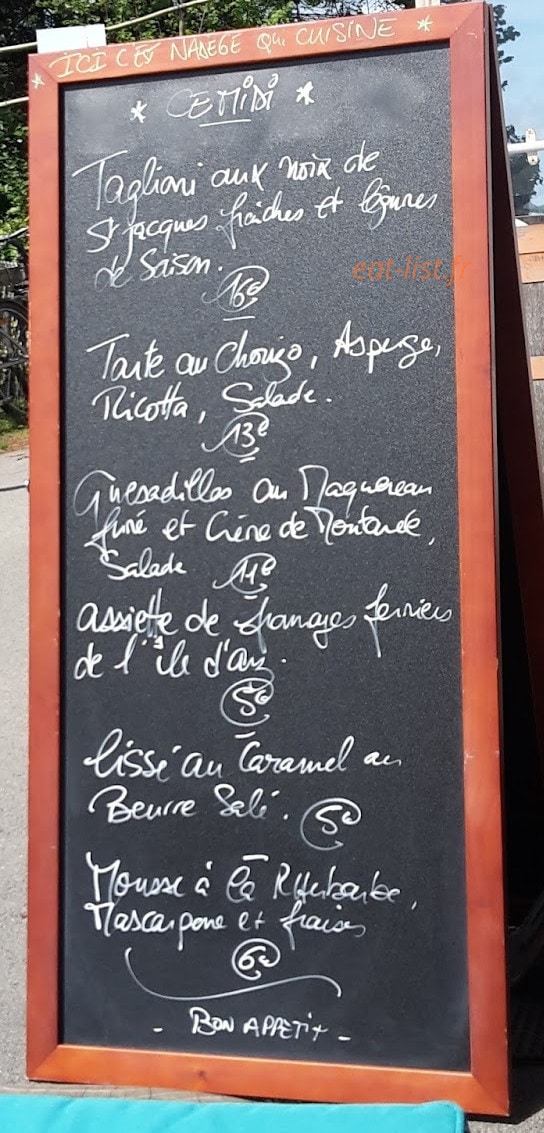 * ICI C'EST NADEGE QUI CUISINE *
* CE MIDI *
Tagliani aux noix de
St jacques fraîches et légumes
de Saison.
16€
eat-list.fr
Tarte au Chorizo, Asperge,
Ricotta, Salade.
13€
Quesadillas au Maquereau
fumé et Crème de Moutarde,
Salade 11€
assiette de fromages fermiers
de l'île d'arz.
5€
lissé au Caramel au
Beurre Salé. 5€
Mousse à la Rhubarbe,
Mascarpone et fraises
6€
- BON APPETIT -